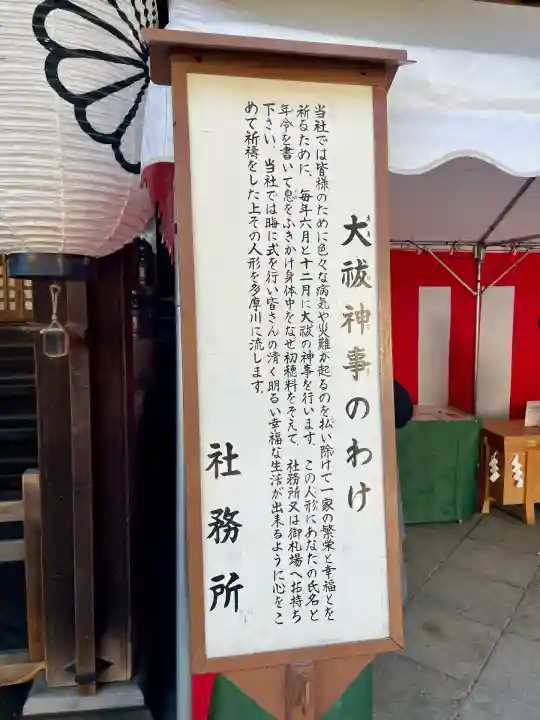 大祓神事のわけ
当社では皆様のために色々な病気や災難が起るのを払い除けて一家の繁栄と幸福とを
祈るために、毎年六月と十二月に大祓の神事を行います。この人形にあなたの氏名と
年令を書いて息をふきかけ身体中をなぜ初穂料をそえて、社務所又は御札場へお持ち
下さい。当社では晦に式を行い皆さんの清く明るい幸福な生活が出来るように心をこ
めて祈禱をした上その人形を多摩川に流します。
社務所